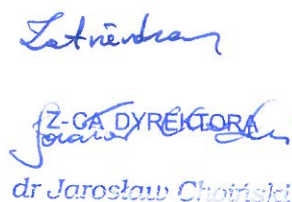 Zatwierdzam
Z-CA DYREKTORA
dr Jarosław Choiński